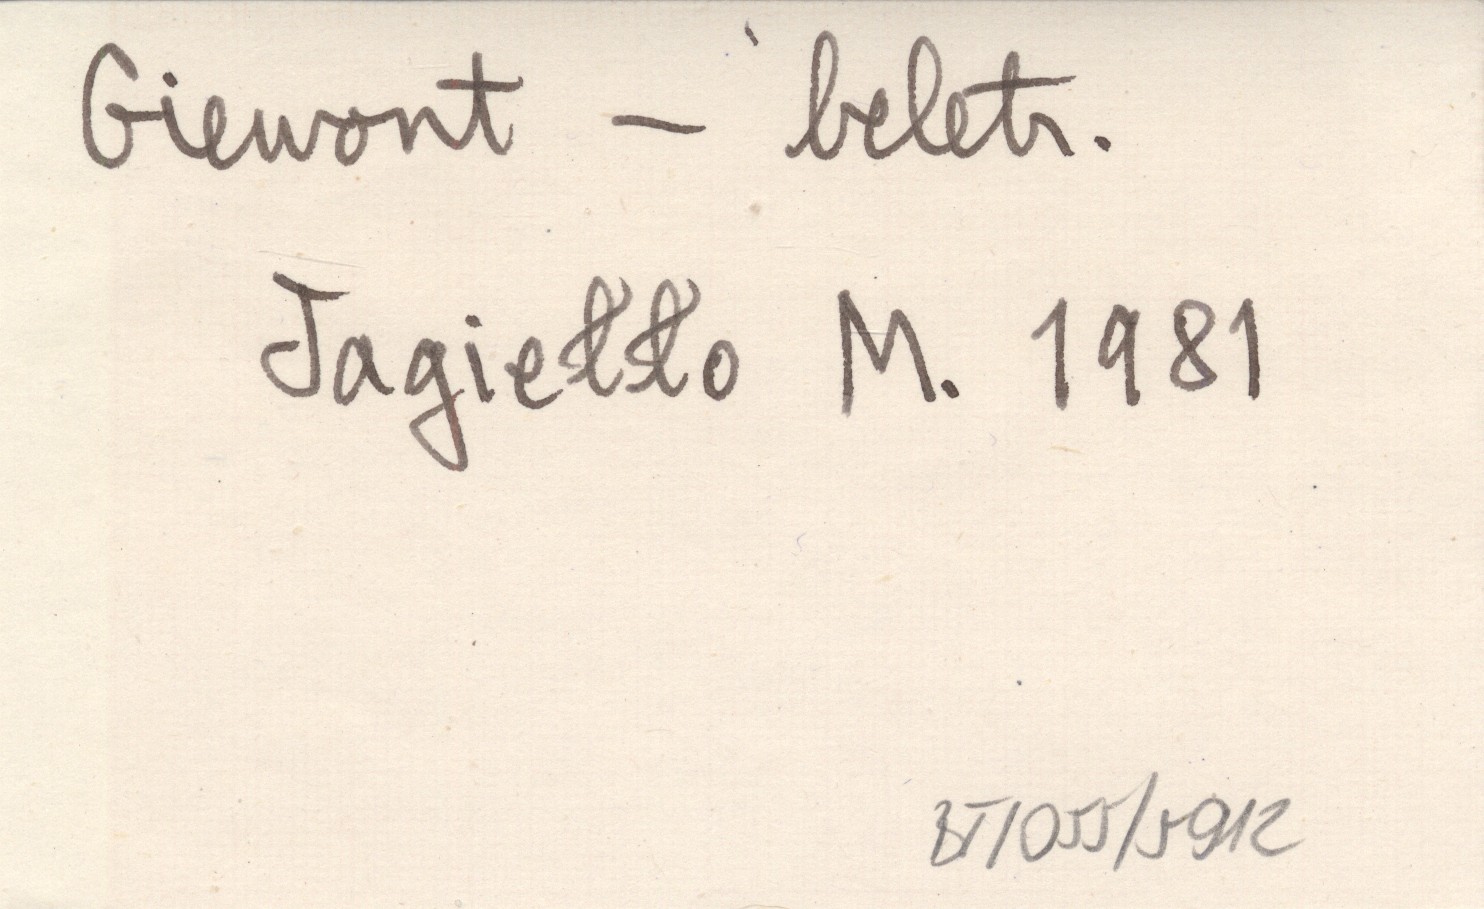 Giewont — beletr.
Jagiełło M. 1981
BT/055/5912